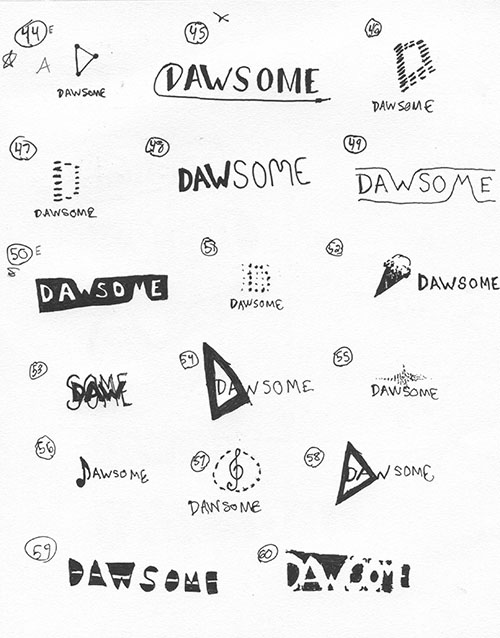 44 E 45 46
A
DAWSOME DAWSOME DAWSOME
47 48 49
DAWSOME DAWSOME DAWSOME
50 E 51 52
DAWSOME DAWSOME DAWSOME
53 54 55
SOME DAW DAWSOME DAWSOME
56 57 58
DAWSOME DAWSOME DAWSOME
59 60
DAWSOME DAWSOME